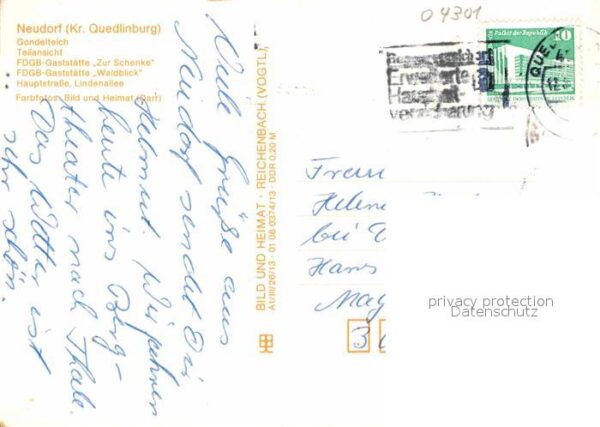 04301
Neudorf (Kr. Quedlinburg)
Gondelteich
Teilansicht
FDGB-Gaststätte „Zur Schenke"
FDGB-Gaststätte „Waldblick"
Hauptstraße, Lindenallee
Farbfotos: Bild und Heimat (Darr)
Viele Grüße aus
Neudorf sendet Dir
Helmut. Wir fahren
heute ins Berg-
theater nach Thale.
Das Wetter ist
sehr schön.
BILD UND HEIMAT · REICHENBACH (VOGTL),
A1/III/26/13 · 01 06 0374/13 · DDR 0,20 M
Erweiterte
Haushalt
versicherung
Palast der Republik
10
QUE
Helene
bei
Hans
Mag
3
privacy protection
Datenschutz